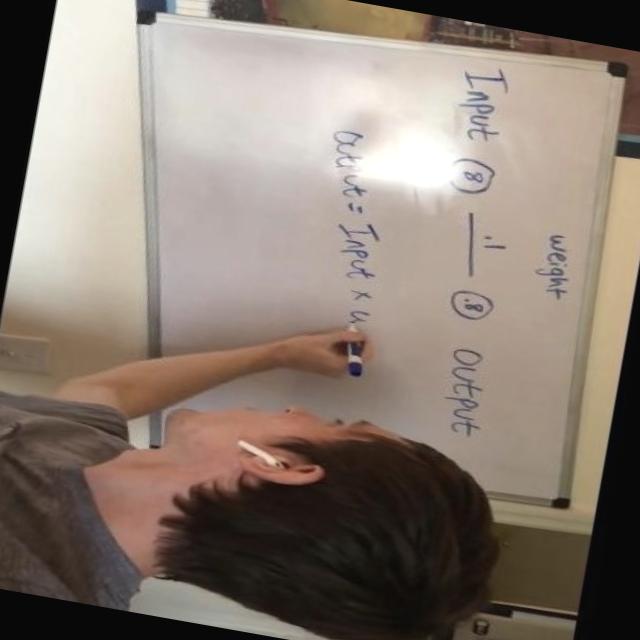 weight
Input 8 .1 .8 Output
Output = Input x w